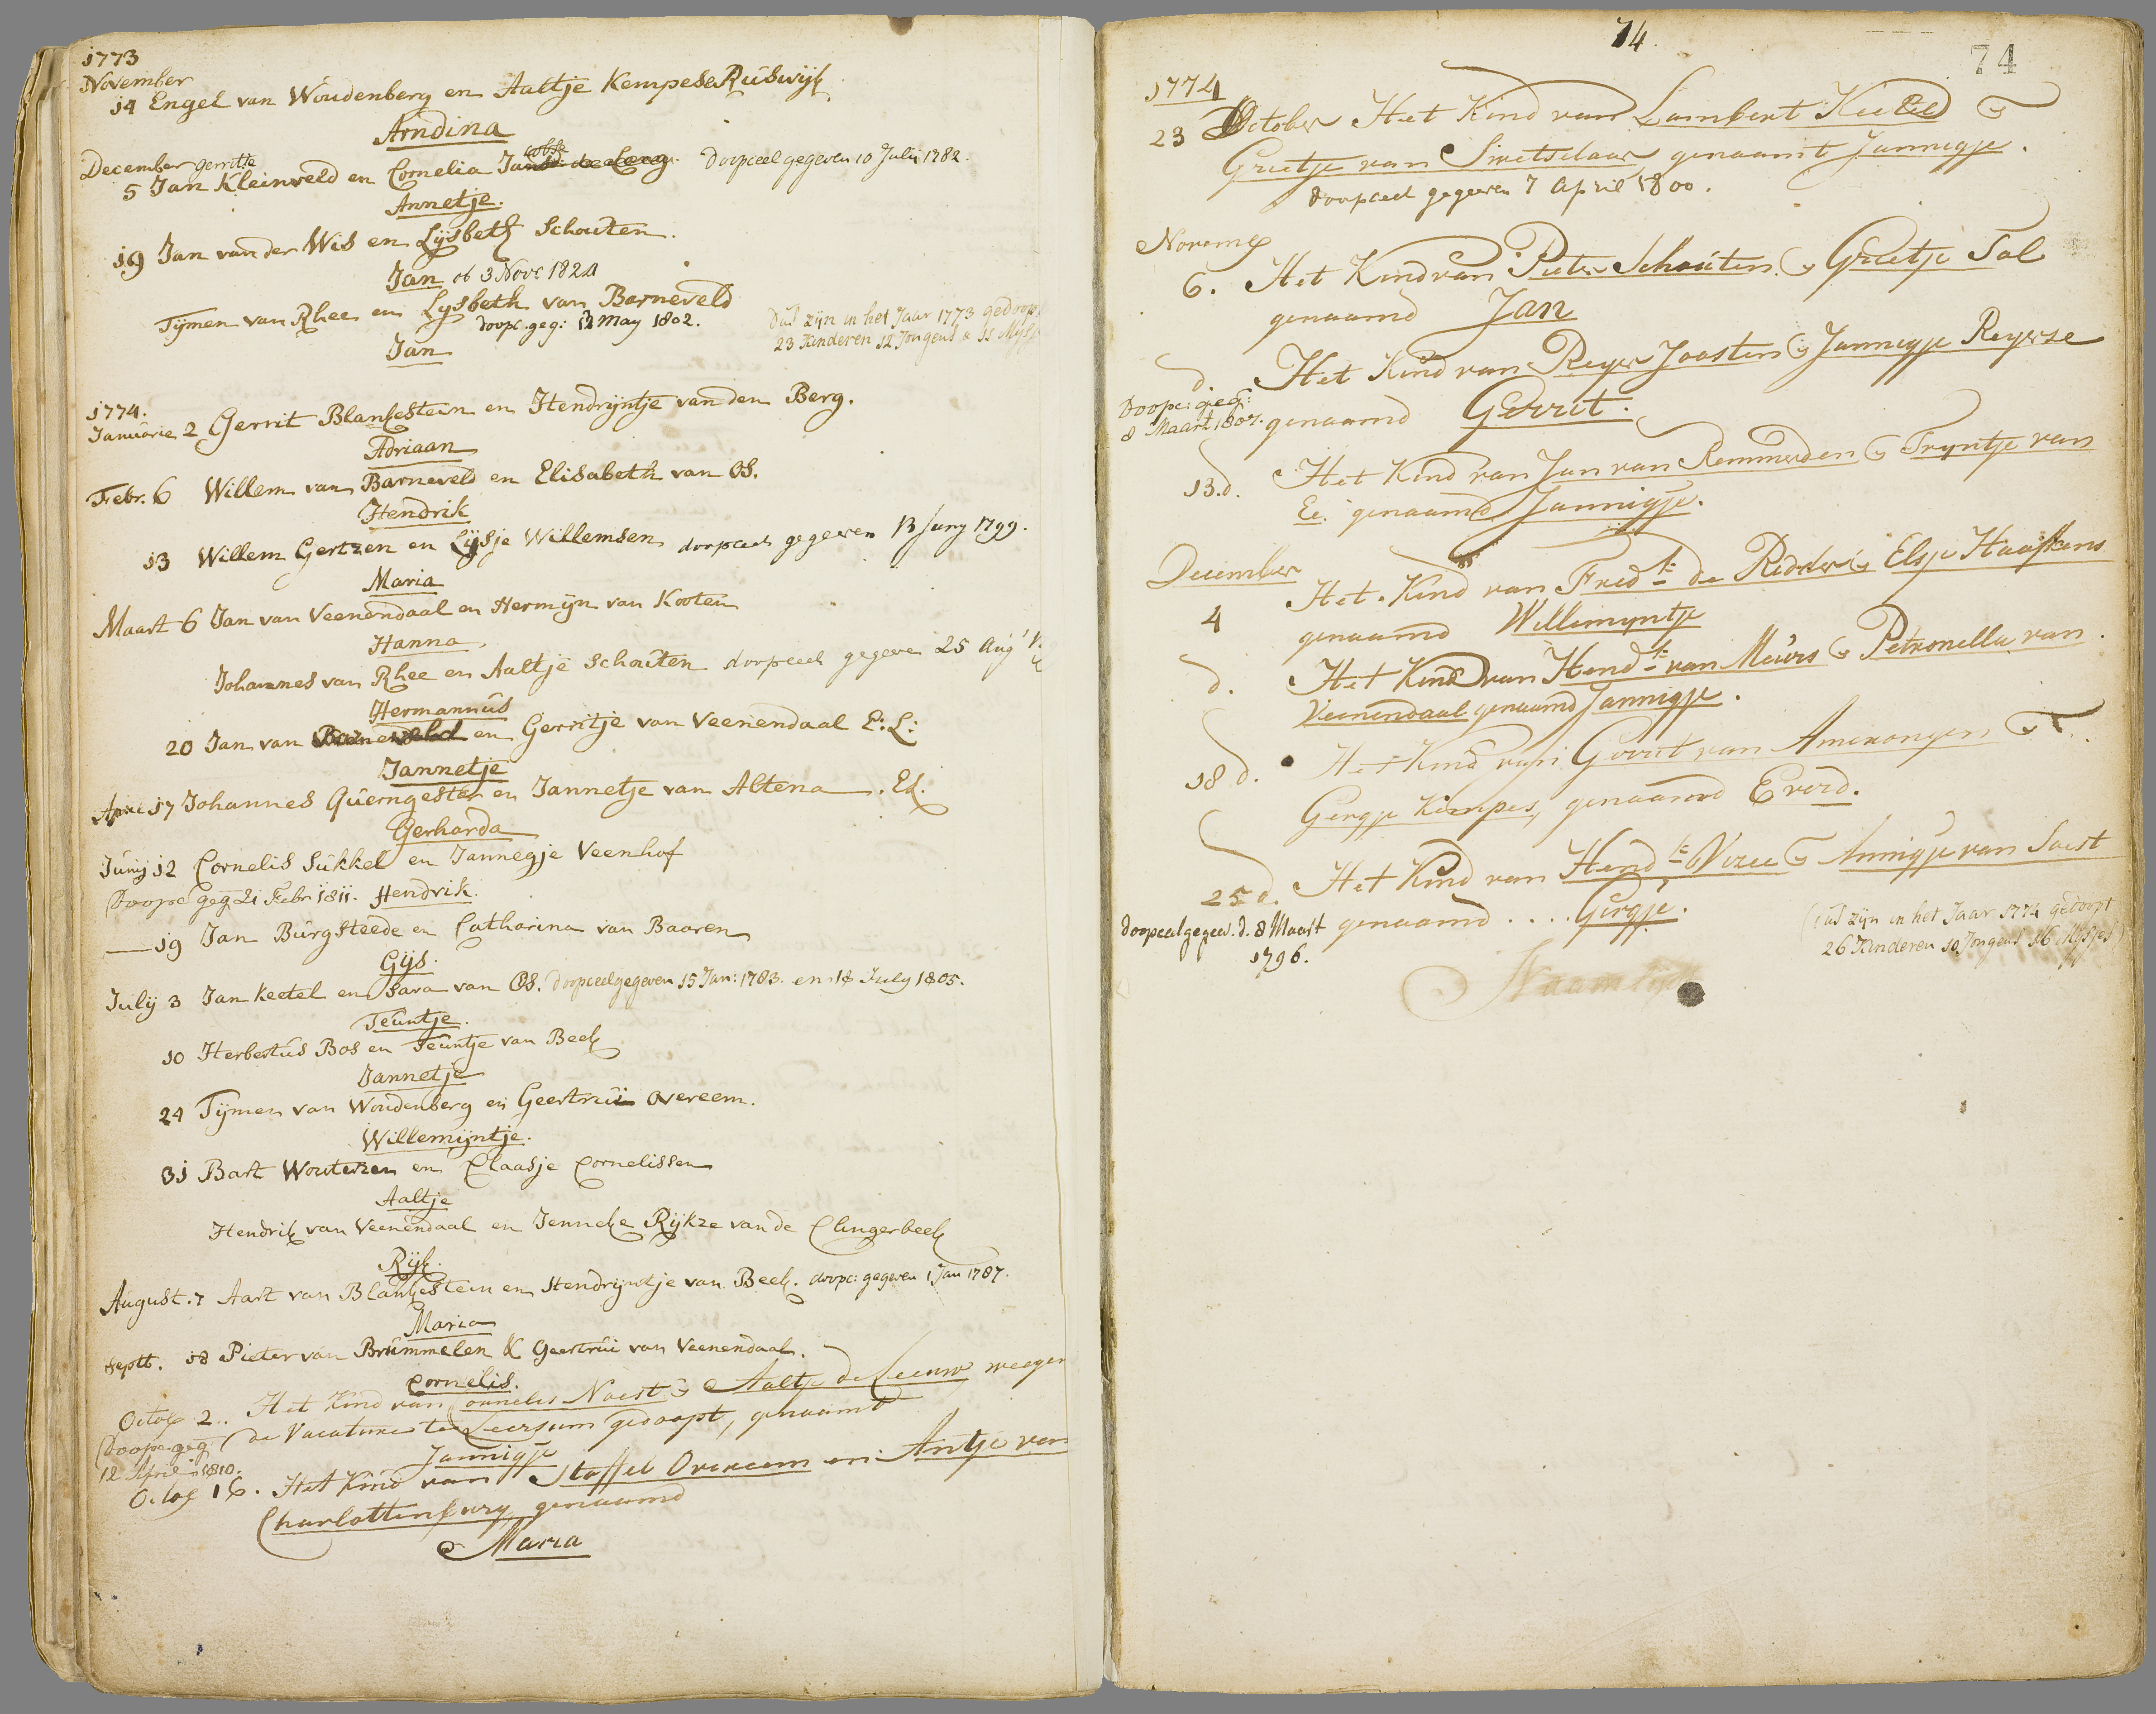 1773
November
14 Engel van Woudenberg en Aaltje Kempese Ruswijk
Arndina
December gerritse
5 Jan Kleinveld en Cornelia Jacobse doopceel gegeven 10 July 1782.
Annetje.
19 Jan van der Wis en Lijsbeth Schouten.
Jan ob 3 Nov: 1824
Tijmen van Rhee en Lysbeth van Barneveld
doopc. geg: 13 May 1802.
Jan
Dus zijn in het Jaar 1773 gedoopt
23 Kinderen 12 Jongens & 11 Mijsjes
1774.
Januarie 2 Gerrit Blankestein en Hendrijntje van den Berg.
Adriaan
Febr. 6 Willem van Barneveld en Elisabeth van Os.
Hendrik
13 Willem Gertzen en Lijsje Willemsen doopceel gegeven 13 Juny 1799.
Maria
Maart 6 Jan van Veenendaal en Hermijn van Kooten
Hanna.
Johannes van Rhee en Aaltje Schouten doopceel gegeven 25 Aug
Hermannus
20 Jan van Barneveld en Gerritje van Veenendaal E: L:
Jannetje
April 17 Johannes Querngester en Jannetje van Altena. El.
Gerharda
Junij 12 Cornelis Sukkel en Jannegje Veenhof
Doopc geg 21 Febr 1811. Hendrik.
— 19 Jan Burgsteede en Catharina van Baaren
Gijs.
Julij 3 Jan Keetel en Sara van Os. doopceel gegeven 15 Jan: 1783. en 18 July 1805.
Teuntje.
10 Herbertus Bos en Teuntje van Beek
Jannetje
24 Tijmen van Woudenberg en Geertrui Overeem.
Willemijntje.
31 Bart Wouterzen en Claasje Cornelissen
Aaltje
Hendrik van Veenendaal en Jenneke Rijkze van de Clingerbeek
Rijk.
August. 7 Aart van Blankestein en Hendrijntje van Beek. doopc: gegeven 1 Jan 1787.
Maria
Septb. 18 Pieter van Brummelen & Geertrui van Veenendaal.
Cornelis.
Octob 2. Het Kind van Cornelis Naest & Aaltje de Leeuw weegen
Doopc geg de Vacature te Leersum gedoopt, genaamt
12 April 1810. Jannigje
Octob 16. Het Kind van Stoffel Overeem en Antje van
Charlottenburg, genaamd
Maria
74.
74
1774
23 October Het Kind van Lambert Keetel &
Grietje van Swetselaar genaamt Jannegje.
doopceel gegeven 7 April 1800.
Novemb
6. Het Kind van Pieter Schouten & Grietje Tal
genaamd Jan
d. Het Kind van Reyer Joosten & Jannegje Reyerse
Doopc: geg:
8 Maart 1807. genaamd Gerrit.
13. d. Het Kind van Jan van Remmerden & Tryntje van
Ee. genaamd Jannigje.
December
4 Het Kind van Fredk de Ridder & Elsje Haaskens
genaamd Willemyntje
d. Het Kind van Hendk van Meurs & Petronella van
Veenendaal genaamd Jannigje.
18 d. Het Kind van Gerrit van Amerongen &
Gergje Kempes, genaamd Everd.
25 d. Het Kind van Hendk Viree & Annigje van Soest
genaamd .... Gergje.
doopceel gegev. d. 8 Maart
1796.
(dus zijn in het Jaar 1774 gedoopt
26 Kinderen 10 Jongens 16 Mijsjes)